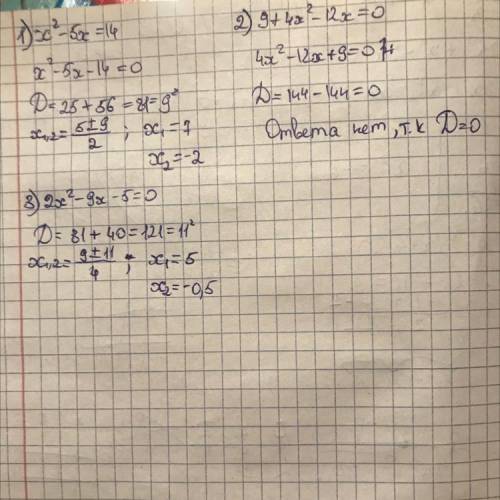 1) x² - 5x = 14
x² - 5x - 14 = 0
D = 25 + 56 = 81 = 9²
x₁,₂ = (5 ± 9)/2 ; x₁ = 7
x₂ = -2
2) 9 + 4x² - 12x = 0
4x² - 12x + 9 = 0
D = 144 - 144 = 0
Ответа нет, т.к D = 0
3) 2x² - 9x - 5 = 0
D = 81 + 40 = 121 = 11²
x₁,₂ = (9 ± 11)/4 ; x₁ = 5
x₂ = -0,5